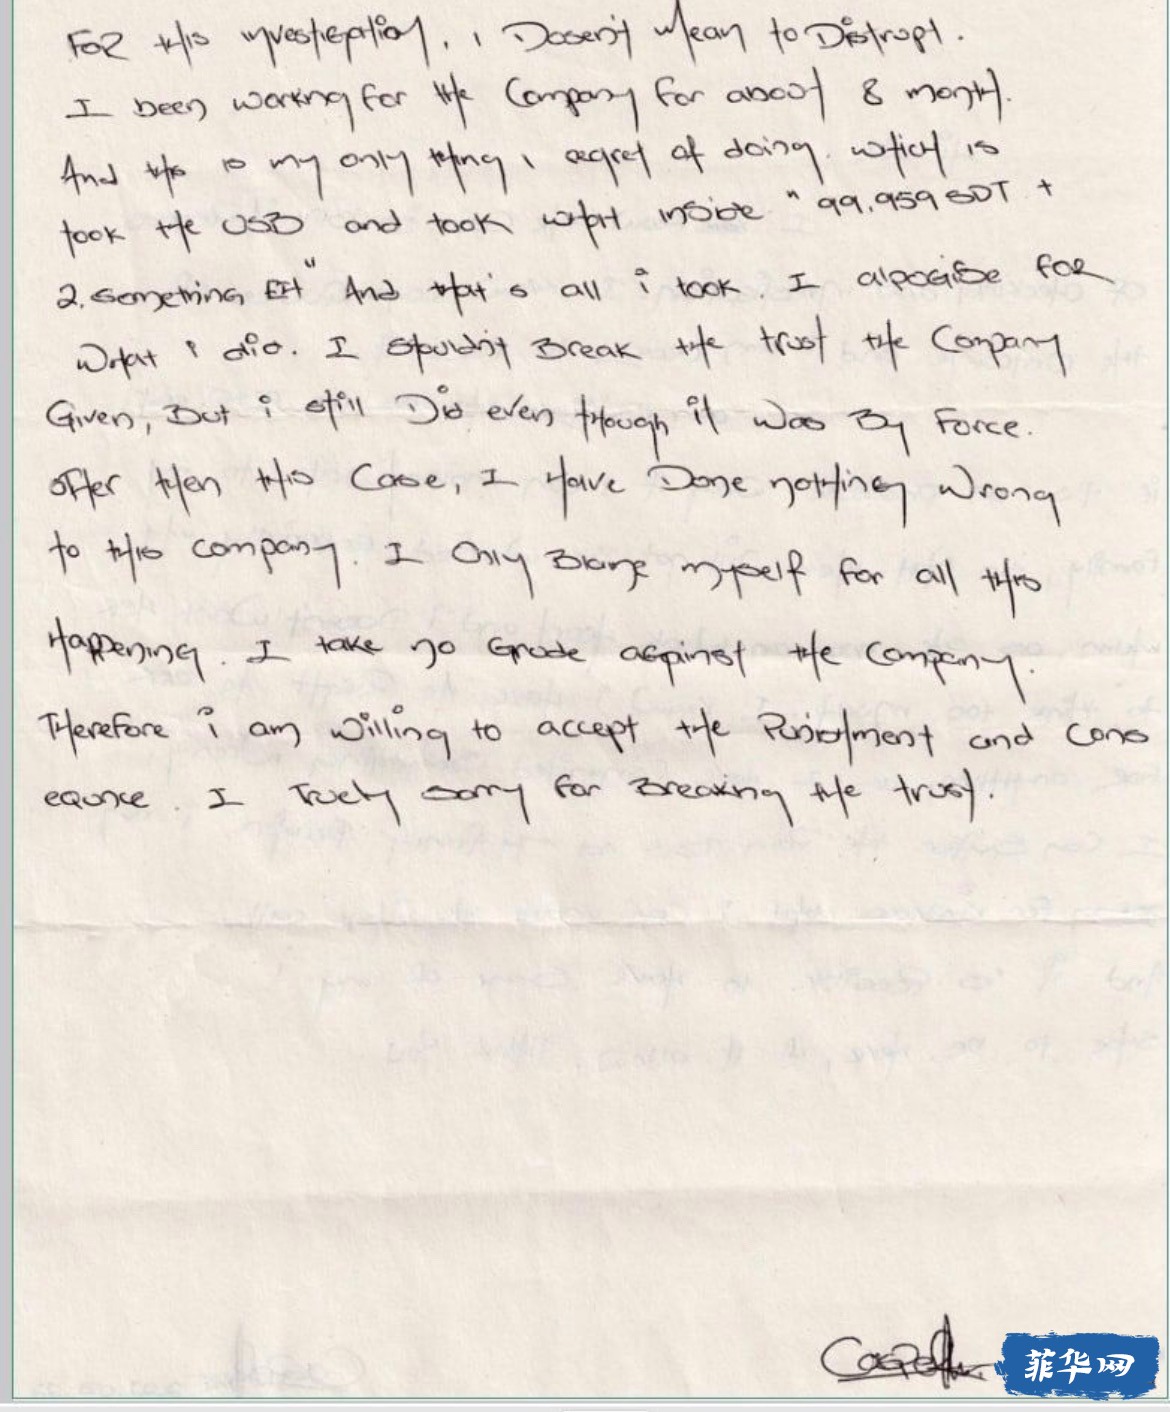 FOR this investigation, i Dosen't Mean to Distrupt.
I been working for the Company for about 8 month.
And this is my only thing i regret of doing. which is
took the USB and took what inside " 99.959 SDT +
2. something Eth" And that's all i took. I alpogise for
What i did. I shouldn't Break the trust the Company
Given, But i still Did even though it was By Force.
offer then this Case, I Have Done nothing Wrong
to this company. I Only Blame myself for all this
Happening. I take no Grude against the Company.
Therefore i am Willing to accept the Punishment and Cons
equnce. I Truely sorry for Breaking the trust.
菲华网